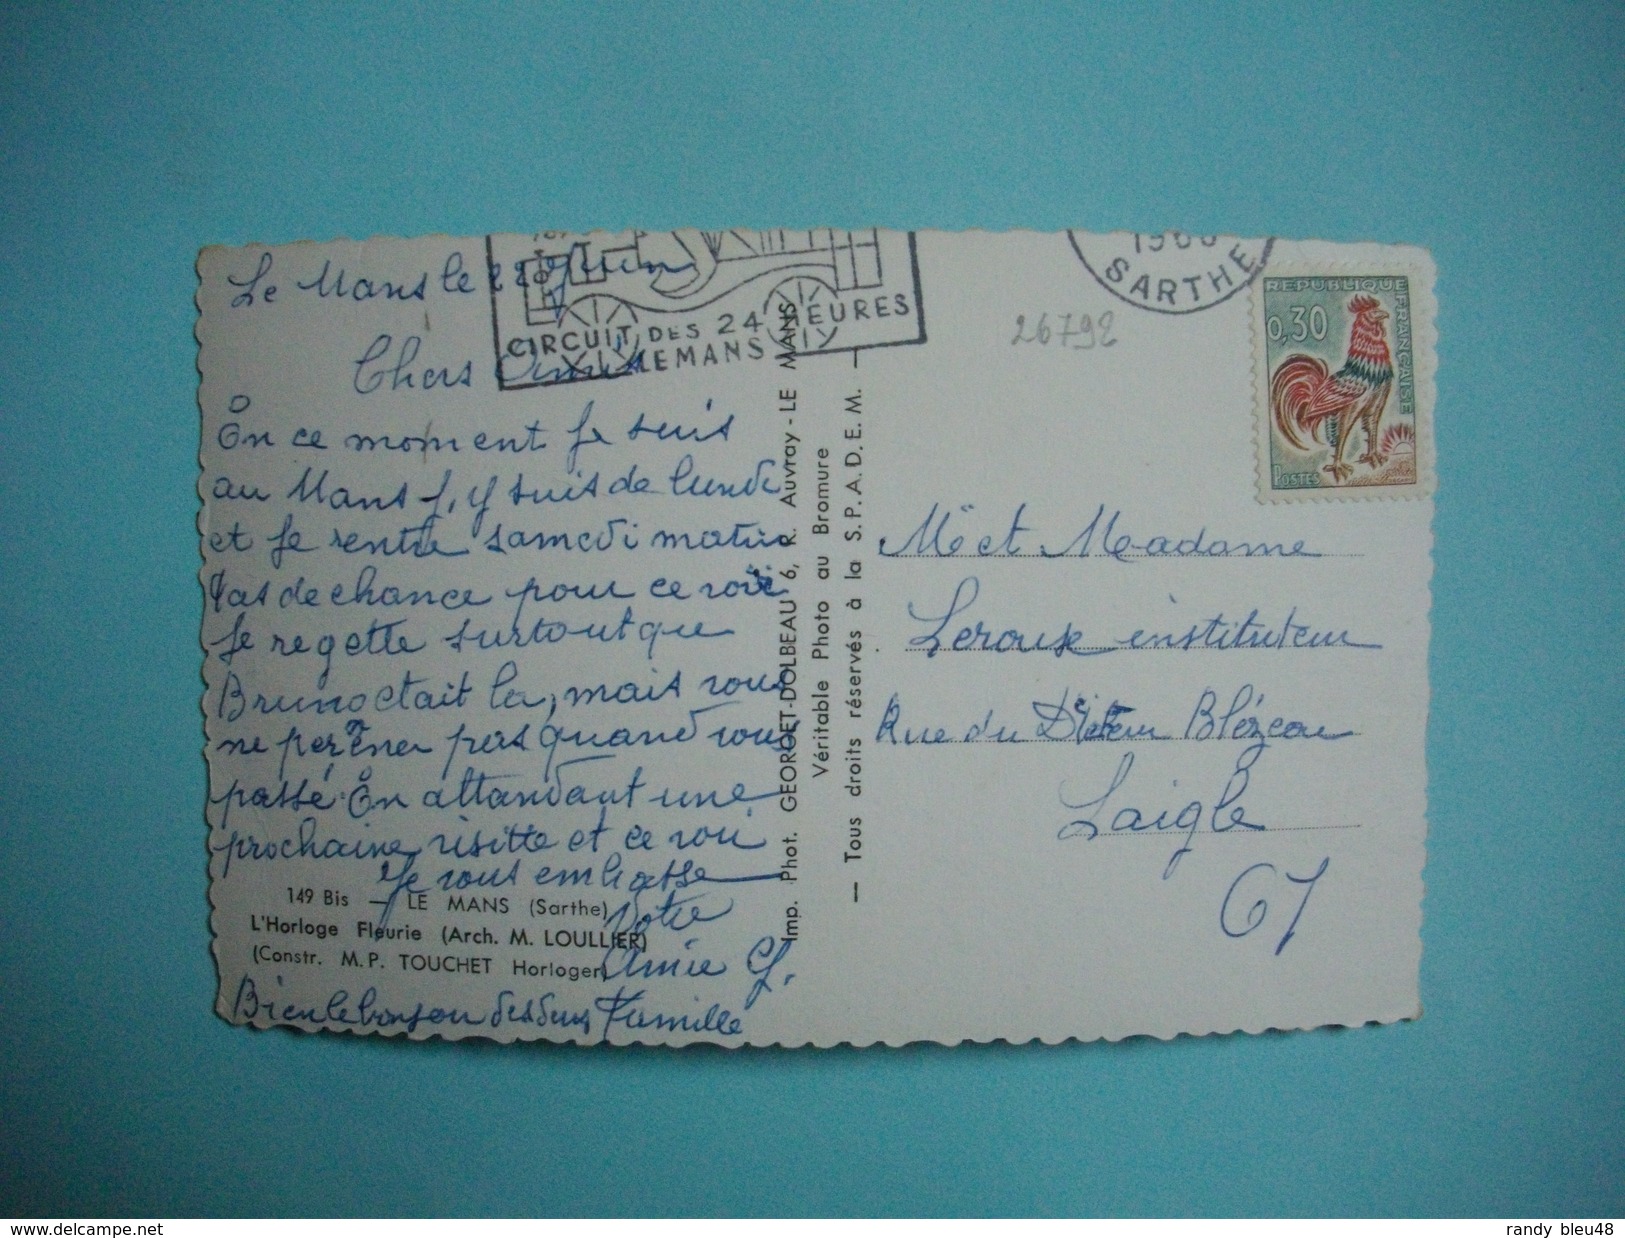 Le Mans le 22 Juin
Chers Amis
En ce moment je suis
au Mans j'y suis de lundi
et je rentre samedi matin
Pas de chance pour ce voir
Je regette surtout que
Bruno etait la, mais vous
ne perdner pas quand vous
passé. En attandant une
prochaine visitte et ce voir
Je vous embrasse
Votre
Amie G.
Bien le bonjour des deux Famille
149 Bis — LE MANS (Sarthe)
L'Horloge Fleurie (Arch. M. LOULLIER)
(Constr. M.P. TOUCHET Horloger)
CIRCUIT DES 24 HEURES
LE MANS
Imp. Phot. GEORGET-DOLBEAU 6, R. Auvray - LE MANS
Véritable Photo au Bromure
— Tous droits réservés à la S.P.A.D.E.M. —
SARTHE
26792
REPUBLIQUE FRANCAISE
0,30
POSTES
Mr et Madame
Leroux instituteur
Rue du Docteur Blézeau
Laigle
61
www.delcampe.net
randy_bleu48